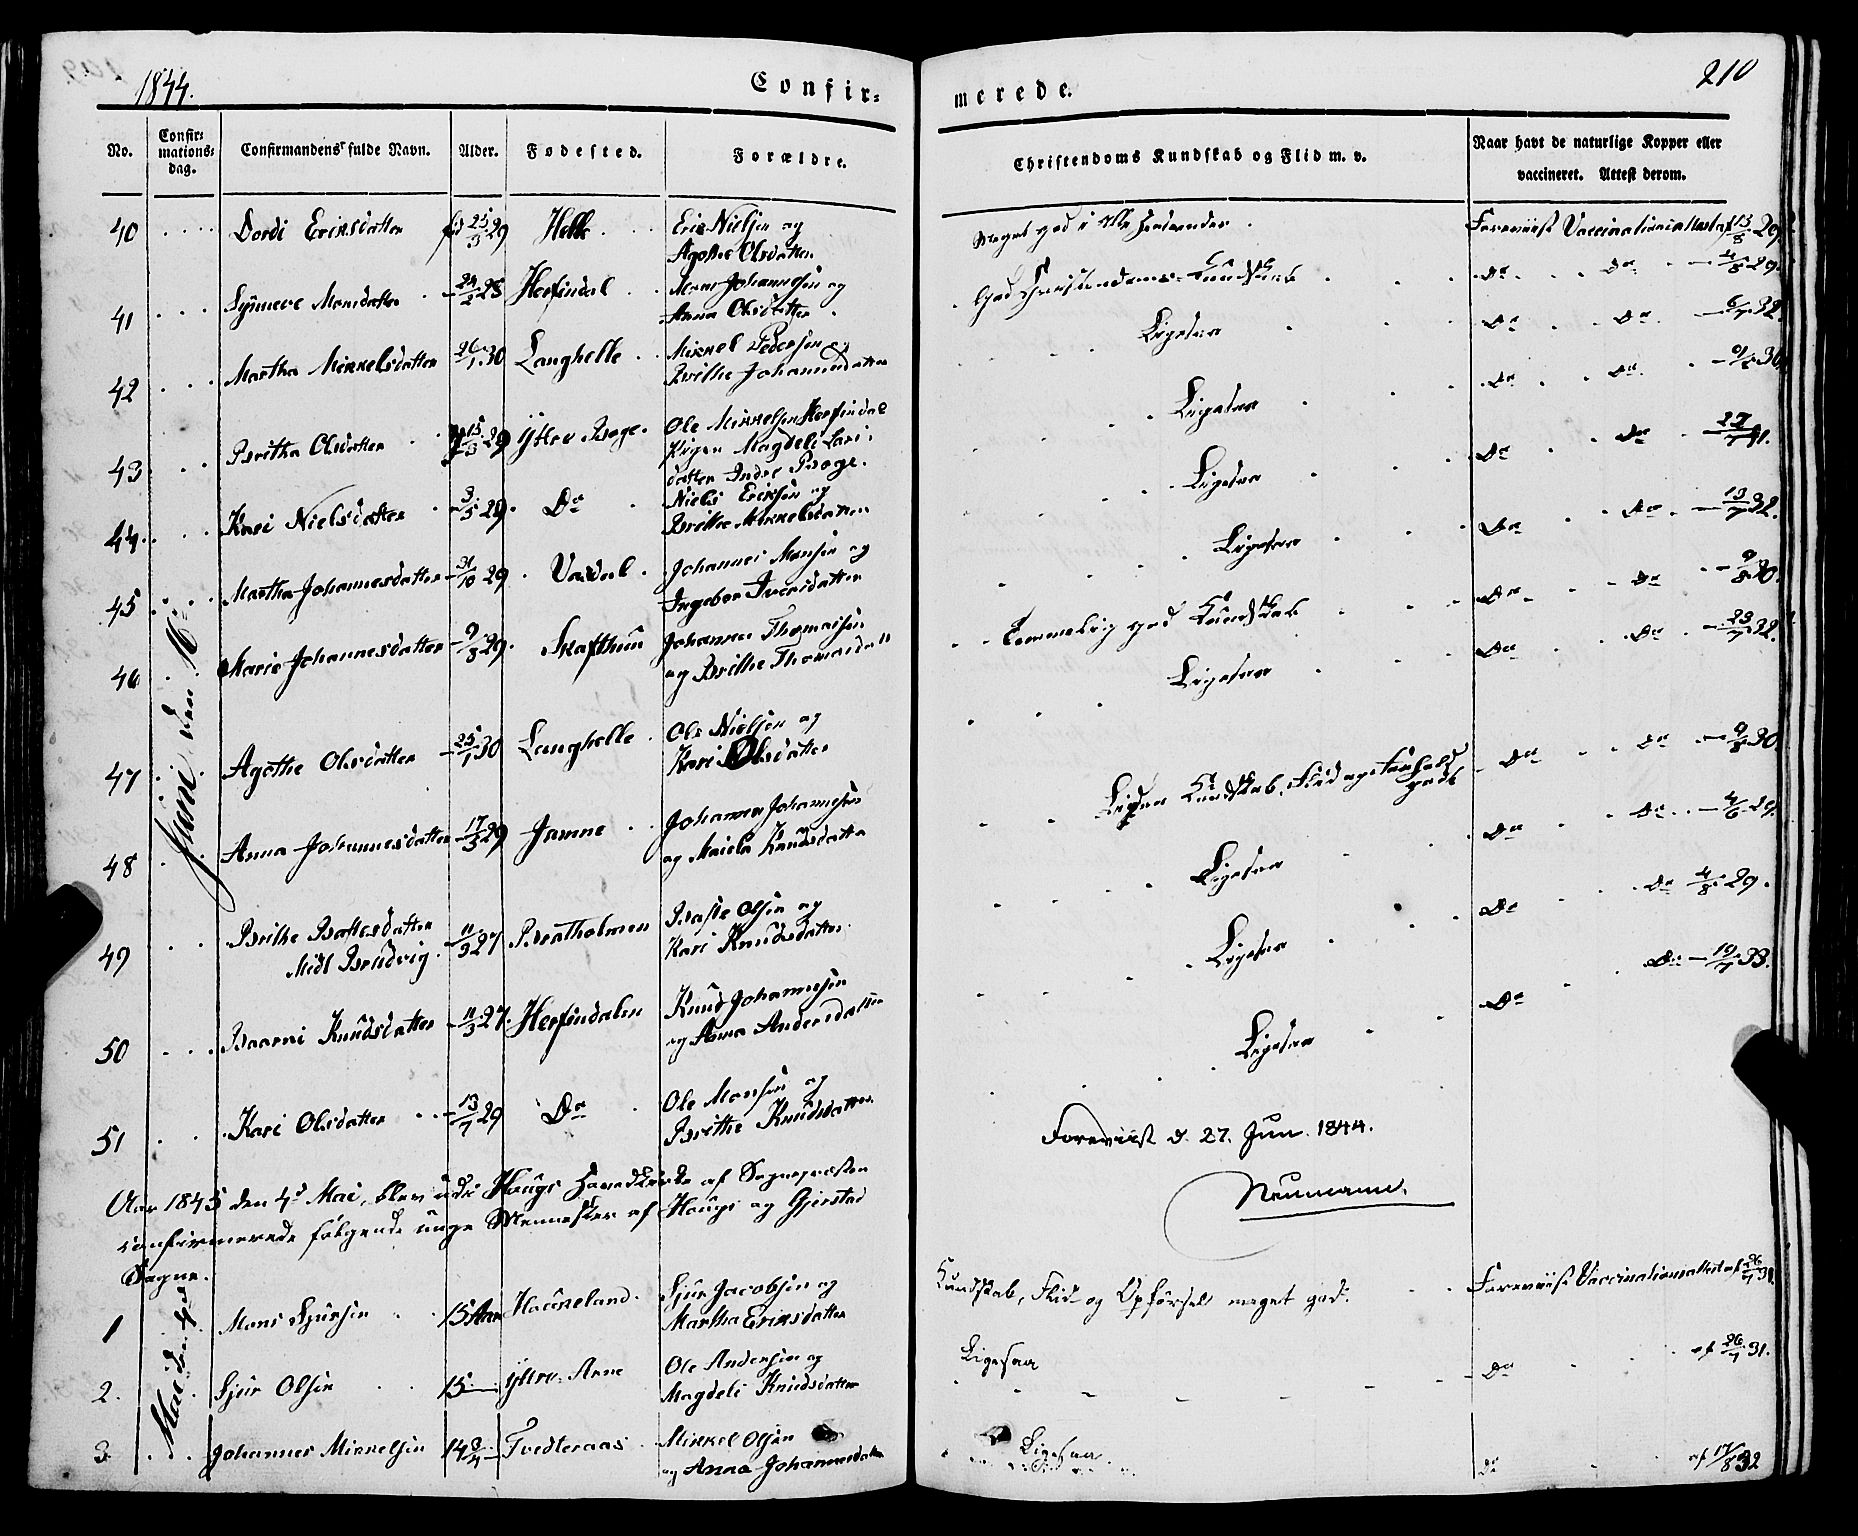 1844.
Confir=
merede.
210
No.
Confir=
mations=
dag.
Confirmandens fulde Navn.
Alder.
Fødested.
Forældre.
Christendoms Kundskab og Flid m. v.
Naar havt de naturlige Kopper eller
vaccineret. Attest derom.
40 Dordi Eriksdatter 25/3 29 Helle Eric Nielsen og
Agathe Olsdatter
Meget god i Foreviist Vaccinationsattest af 13/8 29.
41 Synneve Monsdatter 24/2 28 Herfindal Mons Johannesen og
Anna Olsdatter
God Christendoms-Kundskab Do Do 4/8 29.
42 Martha Mikkelsdatter 26/1 30 Langhelle Mikkel Pedersen og
Brithe Johannesdatter
Ligesaa Do Do 6/7 32.
43 Britha Olsdatter 15/3 29 Yttre Boge Ole Mikkelsen Herfindal
Pigen Magdeli Lars=
datter Indre Boge.
Ligesaa Do Do
44 Kari Nielsdatter 3/5 29 Do Niels Eriksen og
Brithe Mikkelsdatter
Ligesaa Do Do 27/7 31.
45 Martha Johannesdatter 31/10 29 Vasdal Johannes Monsen og
Ingebor Iversdatter
Ligesaa Do Do 13/7 32.
46 Marie Johannesdatter 9/8 29 Skafthun Johannes Thomassen
og Brithe Thomasdatt
Temmelig god Kundskab Do Do 9/8 30.
47 Agathe Olsdatter 25/1 30 Langhelle Ole Nielsen og
Kari Olsdatter
Ligesaa Do Do 23/7 32.
48 Anna Johannesdatter 17/3 29 Jamne Johannes Johannesen
og Knudsdatter
Kundskab, Flid og Forhold
god Do Do 9/8 30
49 Brithe Baltesdatter
Midt Brudvig. 11/3 27 Bratholmen Olsen og
Kari Knudsdatter
Ligesaa Do Do 4/6 29.
50 Baarni Knudsdatter 11/3 27. Herfindalen Knud Johannesen
og Anna Andersdatter
Ligesaa Do Do 4/8 29.
51 Kari Olsdatter 13/7 29 Do Ole Monsen og
Brithe Knudsdatter
Ligesaa Do Do 19/7 33.
Juni den 16de
Foreviist d. 27. Jun. 1844.
Neumann.
Aar 1845 den 4de Mai, blev udi Hougs Hovedkirke af Sognepræsten
confirmerede følgende unge Mennesker af Hougs og Gjerstad
Sogne.
Mai den 4de
1 Mons Sjursen 15 Aar Hauneland. Sjur Jacobsen og
Martha Eriksdatter
Kundskab, Flid og Opførsel meget god. Foreviist Vaccinationsattest af 26/7 31.
2. Sjur Olsen 15 Yttre Arne Ole Andersen og
Magdeli Knudsdatter
Ligesaa Do af 26/7 31.
3. Johannes Mikkelsen 14 3/4 Tvedteraas Mikkel Olsen
og Anna Johannesdatter
Ligesaa do af 17/8 32